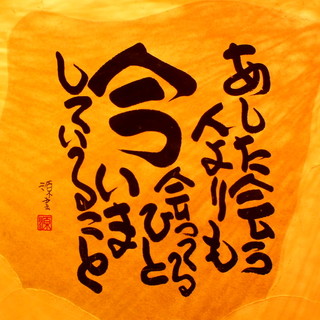 あした会う
人よりも
今
会ってる
ひと
いま
していること